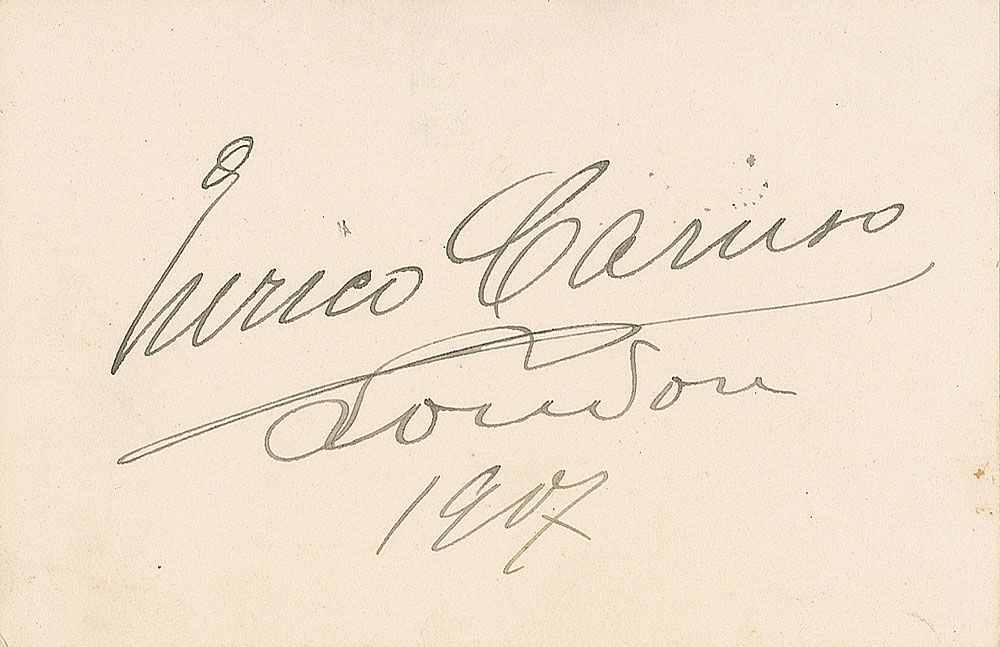 Enrico Caruso
London
1907